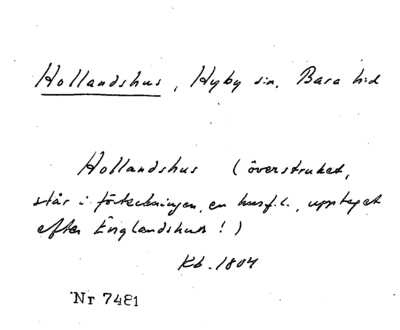 Hollandshus, Hyby sn. Bara hd
Hollandshus (överstruket,
står i förteckningen, en husf.l., upptaget
efter Englandshus!)
Kb. 1804
Nr 7481